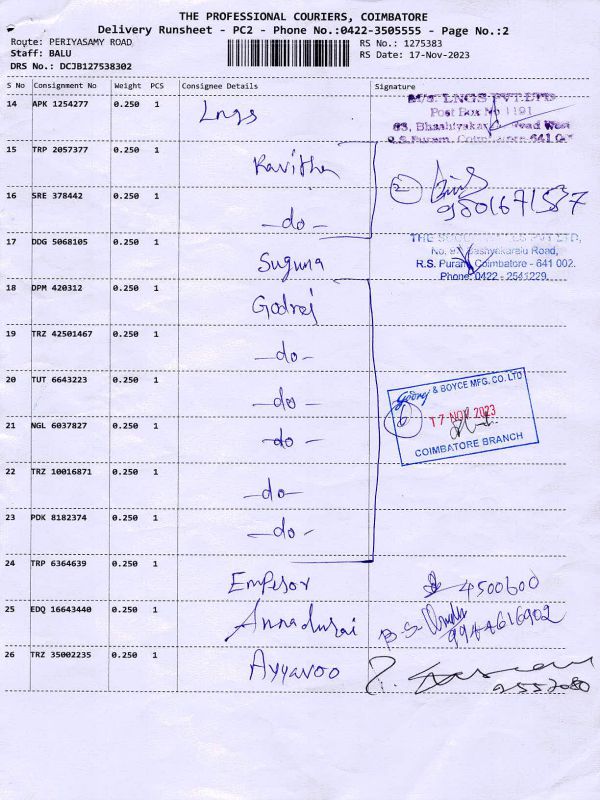 THE PROFESSIONAL COURIERS, COIMBATORE
Delivery Runsheet - PC2 - Phone No.:0422-3505555 - Page No.:2
Route: PERIYASAMY ROAD
Staff: BALU
DRS No.: DCJB127538302
RS No.: 1275383
RS Date: 17-Nov-2023
S No Consignment No Weight PCS Consignee Details Signature
14 APK 1254277 0.250 1 Lngs
M/s. LNGS PVT.LTD
Post Box No 1191
63, Bhashyakaralu Road West
R.S. Puram, Coimbatore 641 002
15 TRP 2057377 0.250 1 Kavitha
16 SRE 378442 0.250 1 -do-
2
9801671537
17 DDG 5068105 0.250 1 Suguna
THE PVT LTD,
Bashyakaralu Road,
R.S. Puram, Coimbatore - 641 002.
Phone: 0422 - 2541229
18 DPM 420312 0.250 1 Godrej
19 TRZ 42501467 0.250 1 -do-
20 TUT 6643223 0.250 1 -do-
21 NGL 6037827 0.250 1 -do-
22 TRZ 10016871 0.250 1 -do-
23 PDK 8182374 0.250 1 -do-
Godrej & BOYCE MFG. CO. LTD
6
17 NOV 2023
COIMBATORE BRANCH
24 TRP 6364639 0.250 1 Emperor 4500600
25 EDQ 16643440 0.250 1 Annadurai
9944616902
26 TRZ 35002235 0.250 1 Ayyavoo
2552080